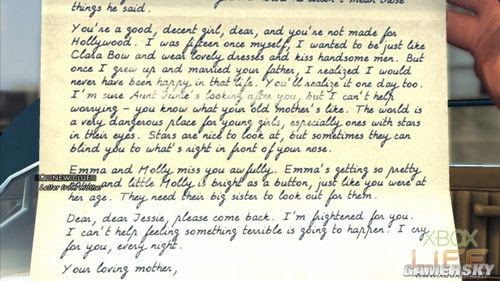 things he said.
You're a good, decent girl, dear, and you're not made for
Hollywood. I was fifteen once myself, I wanted to be just like
Clara Bow and wear lovely dresses and kiss handsome men. But
once I grew up and married your father, I realized I would
never have been happy in that life. You'll realize it one day too.
I'm sure Aunt June's looking after you, but I can't help
worrying - you know what your old mother's like. The world is
a very dangerous place for young girls, especially ones with stars
in their eyes. Stars are nice to look at, but sometimes they can
blind you to what's right in front of your nose.
Emma and Molly miss you awfully. Emma's getting so pretty
NEW CLUE
and little Molly is bright as a button, just like you were at
Letter from Mother
her age. They need their big sister to look out for them.
Dear, dear Jessie, please come back. I'm frightened for you.
I can't help feeling something terrible is going to happen. I cry
for you, every night.
Your loving mother,
XBOX
LIFE
GAMERSKY